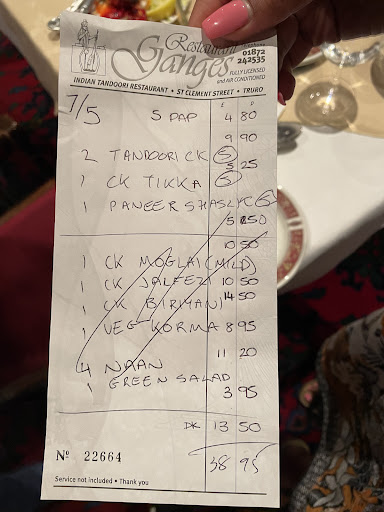 Restaurant
Ganges
Telephone
01872
242535
FULLY LICENSED
and AIR CONDITIONED
INDIAN TANDOORI RESTAURANT • ST CLEMENT STREET • TRURO
£ P
7/5 5 PAP 4 80
9 90
2 TANDOORI CK (S)
5 25
1 CK TIKKA (S)
1 PANEER SHASLYC
5 50
10 50
1 CK MOGLAI (MILD)
1 CK JALFEZI 10 50
1 CK BIRIYANI 14 50
1 VEG KORMA 8 95
11 20
4 NAAN
1 GREEN SALAD
3 95
DK 13 50
No 22664
38 95
Service not included • Thank you